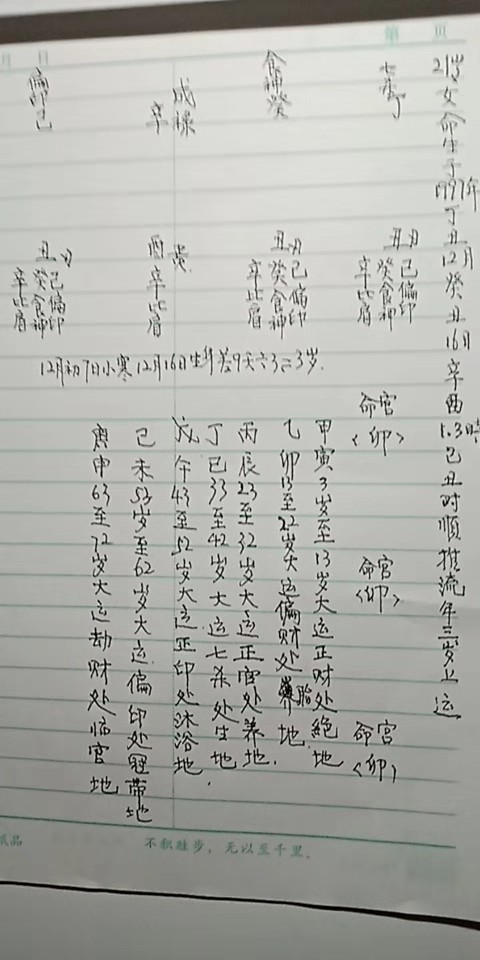 第 页
月 日
21岁女命生于1997年丁丑12月癸丑16日辛酉1.3時己丑时順推流年三岁上运
七杀丁
食神癸
辛
偏印己
丑
己偏印
癸食神
辛比肩
丑
己偏印
癸食神
辛比肩
酉
辛比肩
丑
己偏印
癸食神
辛比肩
12月初7日小寒12月16日生 差9天 3岁.
命宫
<卯>
命宫
<卯>
命宫
<卯>
甲寅3岁至13岁大运正财处絕地
乙卯13至22岁大运偏财处胎地.
丙辰23至32岁大运正官处养地.
丁巳33至42岁大运七杀处生地.
戊午43至52岁大运正印处沐浴地
己未53岁至62岁大运偏印处冠帯地
庚申63至72岁大运劫财处临官地
纸品
不积跬步，无以至千里。